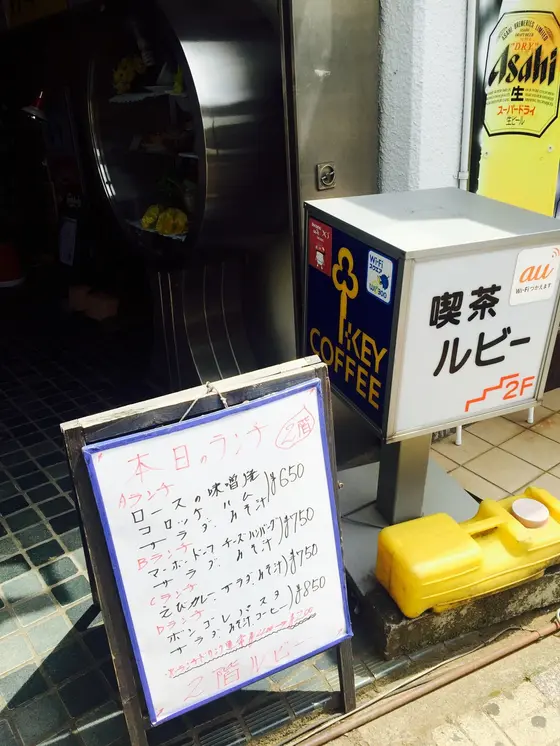 ASAHI BREWERIES LIMITED
"DRY"
Asahi
生
スーパードライ
生ビール
Wi-Fi
KEY
COFFEE
au
Wi-Fiつかえます
喫茶
ルビー
2F
本日のランチ
2階
Aランチ
ロースの味噌
コロッケ ハム
サラダ みそ汁)¥650
Bランチ
マーボドーフ チーズハンバーグ
サラダ みそ汁)¥750
Cランチ
えびカレー サラダ みそ汁)¥750
Dランチ
ボンゴレパスタ
サラダ みそ汁 コーヒー)¥850
2階ルビー